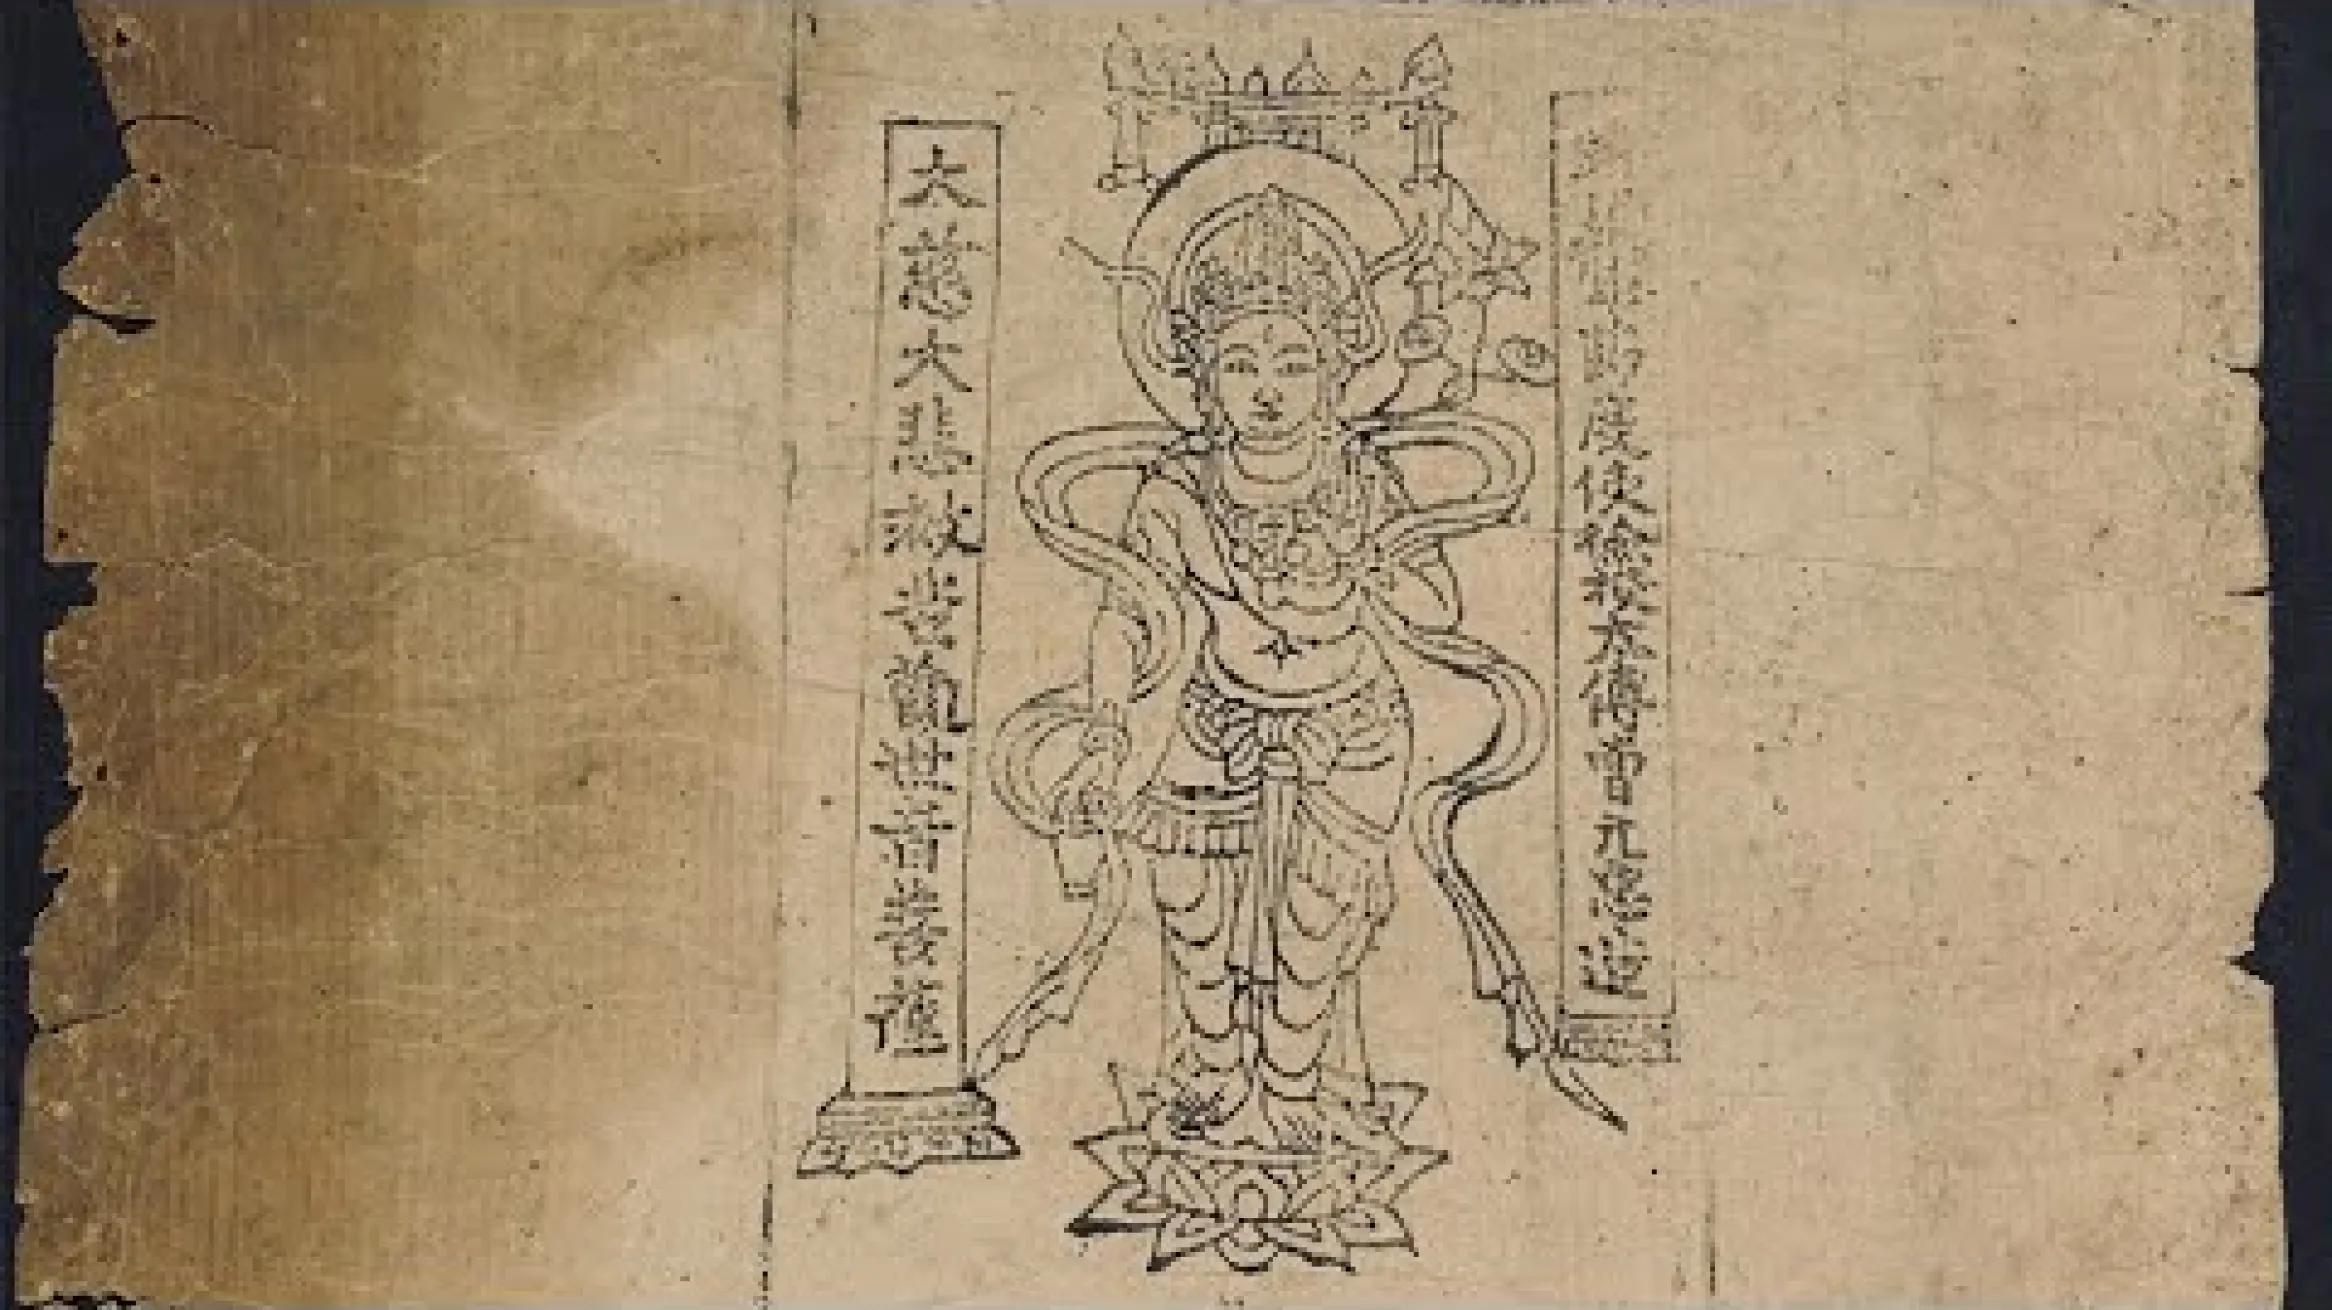 使檢校太傅曹元忠造
大慈大悲救苦觀世音菩薩